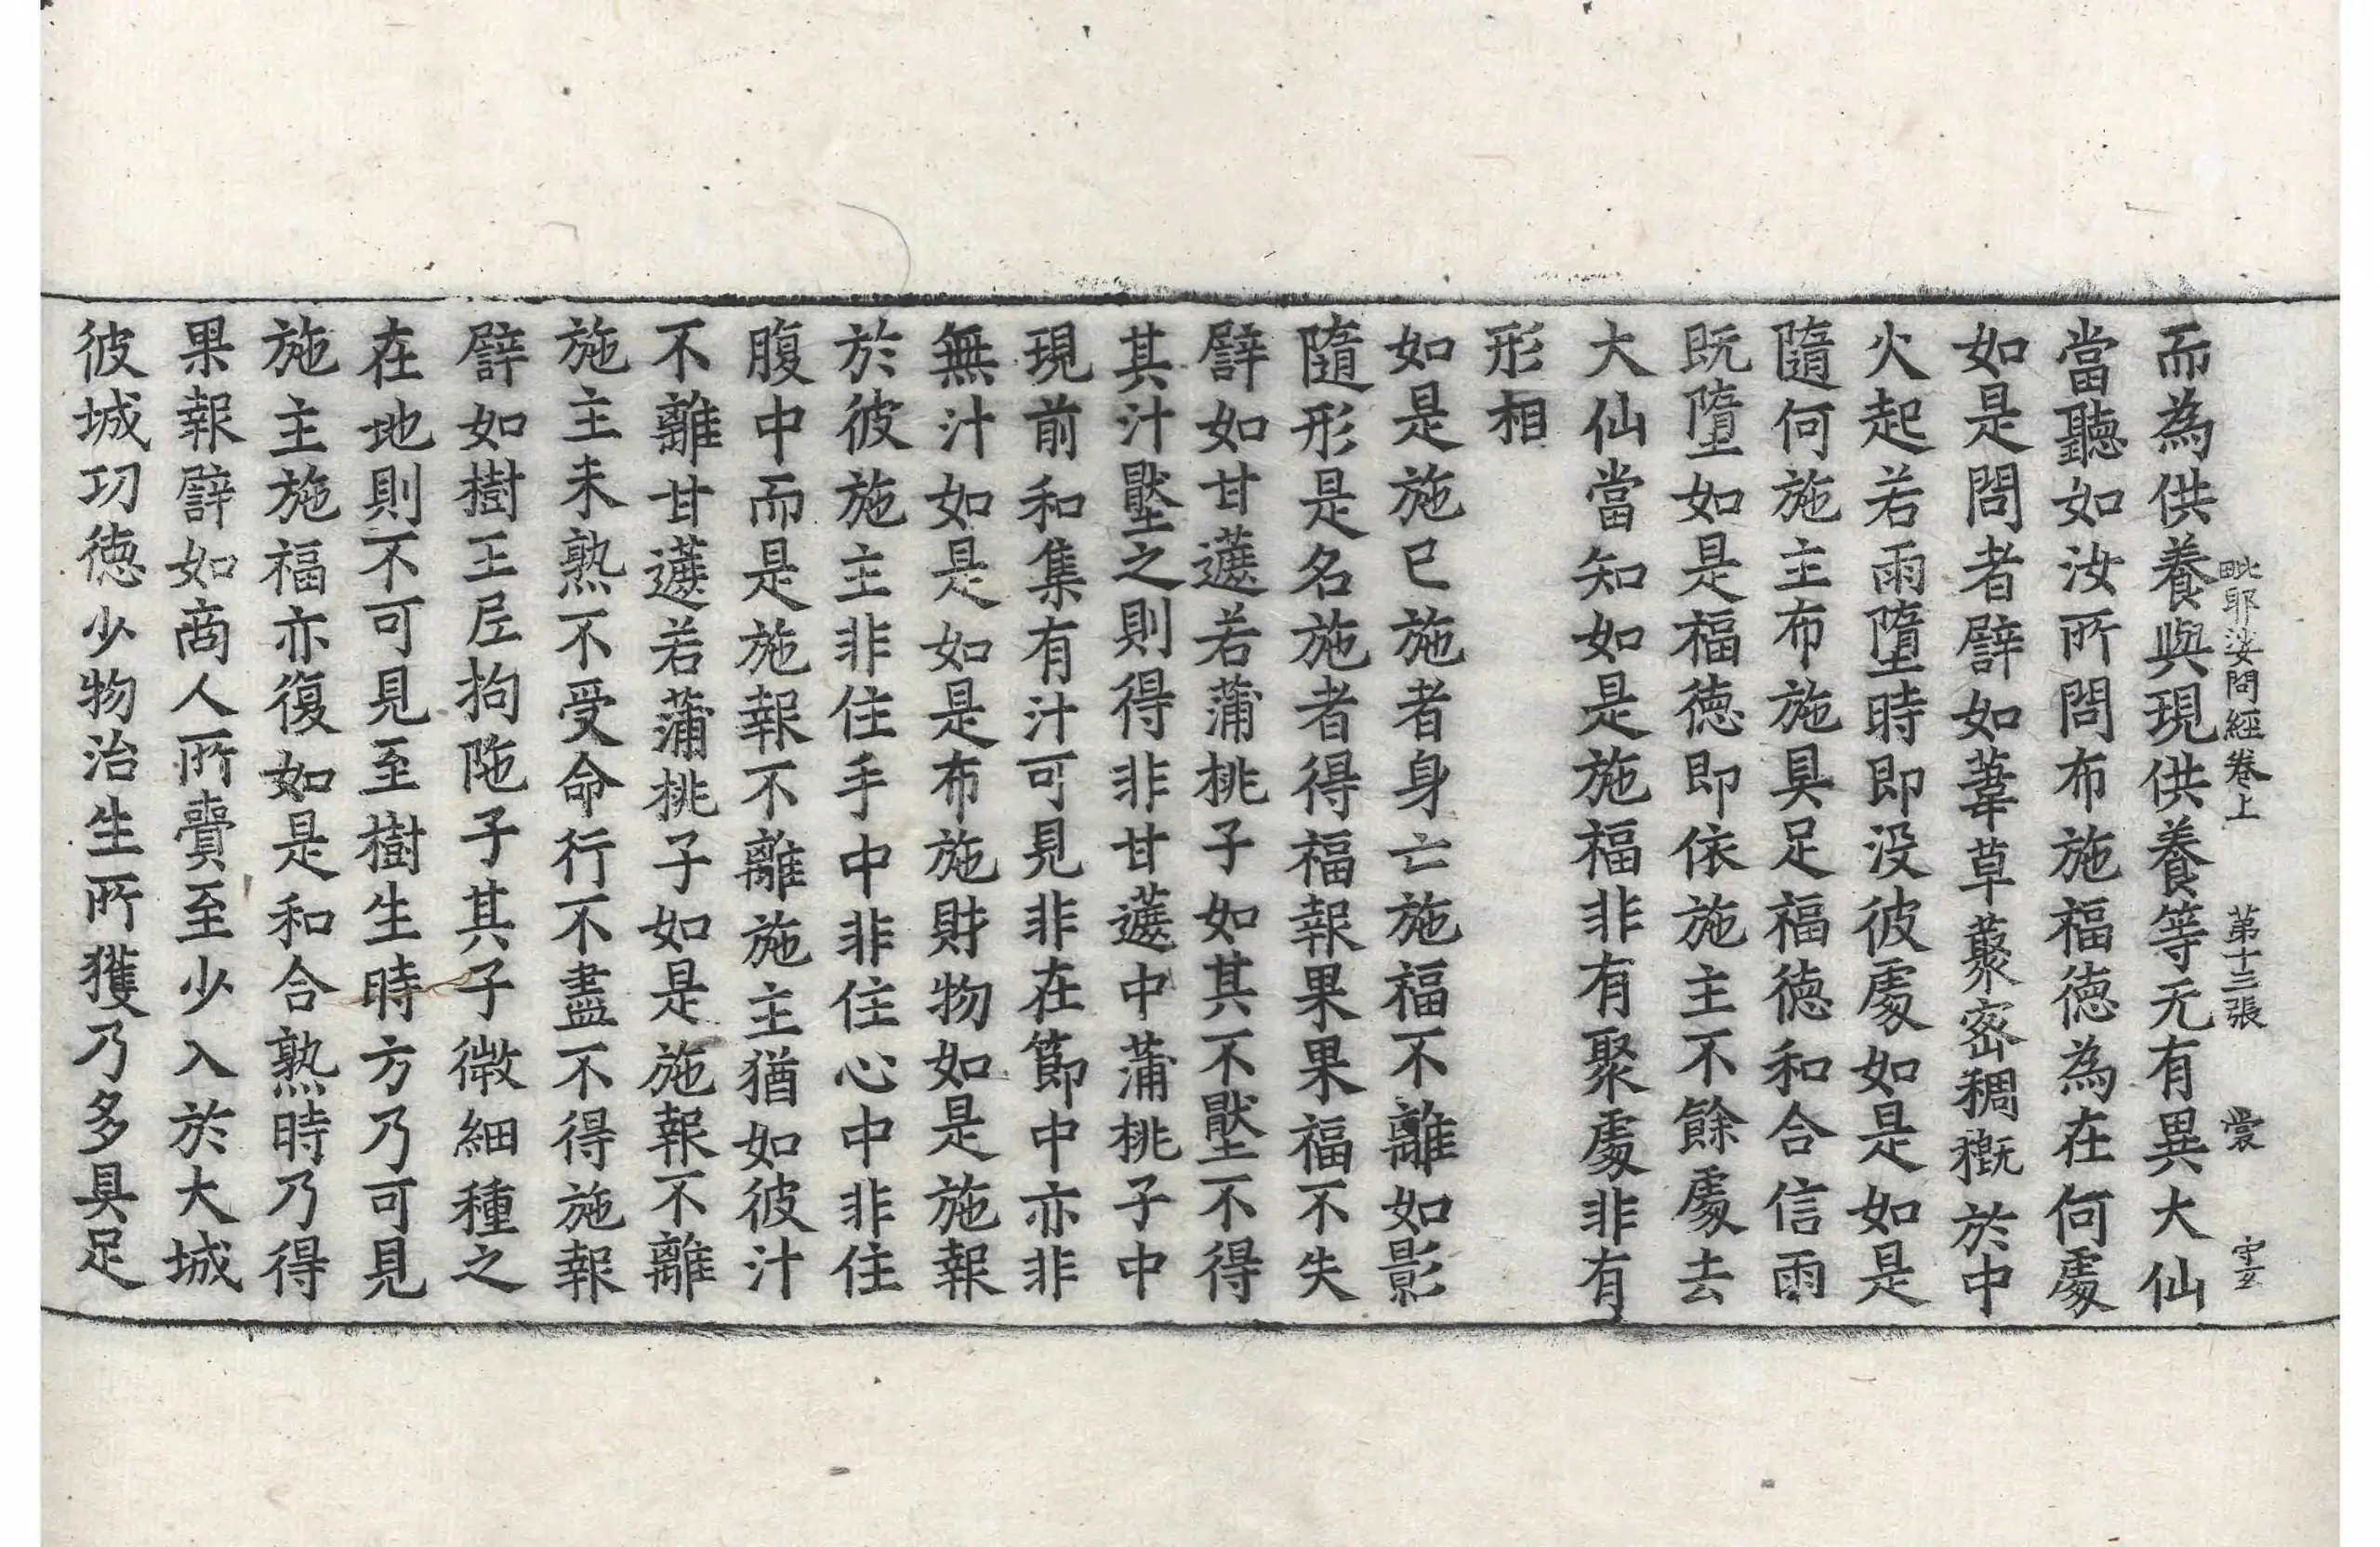 毗耶娑問經卷上　第十三張　裳
而為供養與現供養等无有異大仙
當聽如汝所問布施福德為在何處
如是問者譬如葦草藂密稠穊於中
火起若雨墮時即没彼處如是如是
隨何施主布施具足福德和合信雨
既墮如是福德即依施主不餘處去
大仙當知如是施福非有聚處非有
形相
如是施已施者身亡施福不離如影
隨形是名施者得福報果果福不失
譬如甘蔗若蒲桃子如其不壓不得
其汁壓之則得非甘蔗中蒲桃子中
現前和集有汁可見非在節中亦非
無汁如是如是布施財物如是施報
於彼施主非住手中非住心中非住
腹中而是施報不離施主猶如彼汁
不離甘蔗若蒲桃子如是施報不離
施主未熟不受命行不盡不得施報
譬如樹王尼拘陁子其子微細種之
在地則不可見至樹生時方乃可見
施主施福亦復如是和合熟時乃得
果報譬如商人所賷至少入於大城
彼城功德少物治生所獲乃多具足